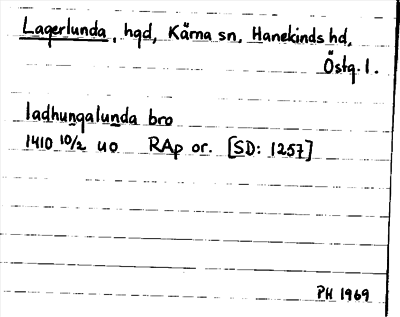 Lagerlunda, hgd, Kärna sn, Hanekinds hd,
Östg. l.
ladhungalunda bro
1410 10/2 uo RAp or. [SD: 1257]
PH 1969